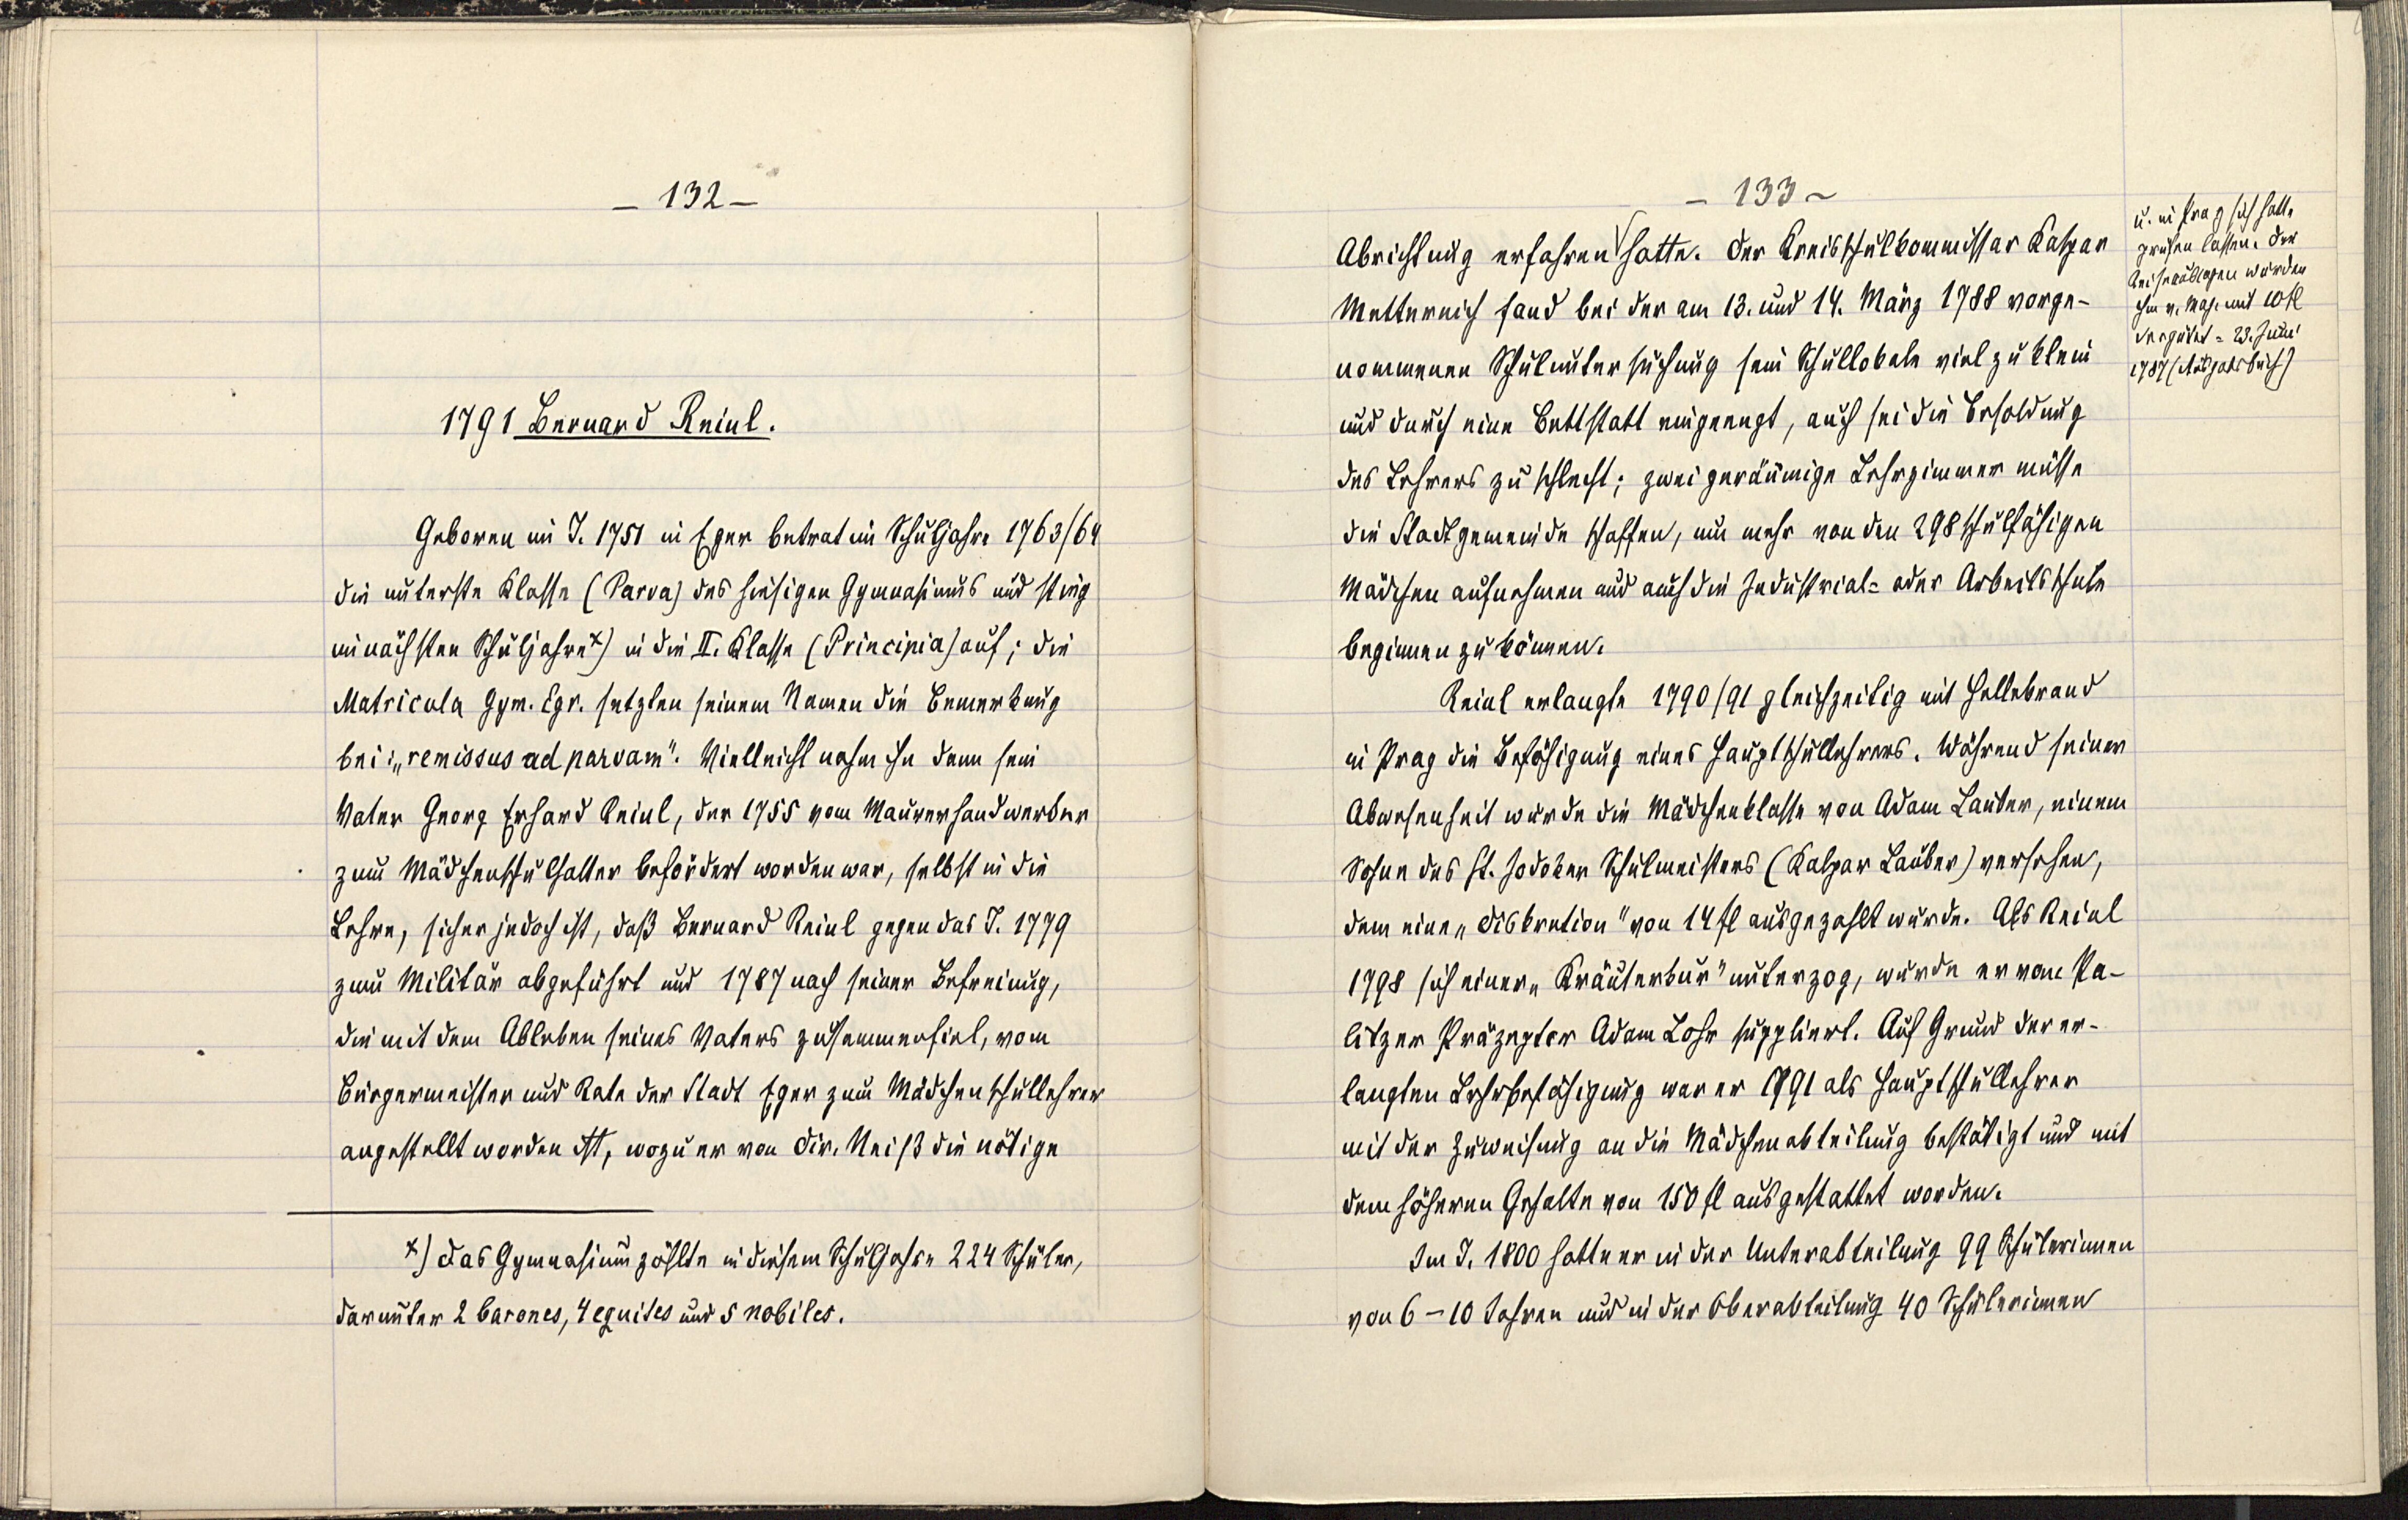 - 132 -
1791 Bernard Reinl.
Geboren im J. 1751 in Eger betrat im Schuljahre 1763/64
die unterste Klasse (Parva) des hiesigen Gymnasiums und stieg
im nächsten Schuljahre*) in die II. Klasse (Principia) auf; die
Matricula Gym. Egr. setzten seinem Namen die Bemerkung
bei: „remissus ad parvam". Vielleicht nahm ihn dann sein
Vater Georg Erhard Reinl, der 1755 vom Maurerhandwerker
zum Mädchenschulhalter befördert worden war, selbst in die
Lehre, sicher jedoch ist, daß Bernard Reinl gegen das J. 1779
zum Militär abgeführt und 1787 nach seiner Befreiung,
die mit dem Ableben seines Vaters zusammenfiel, vom
Bürgermeister und Rate der Stadt Eger zum Mädchenschullehrer
angestellt worden ist, wozu er von Dir. Neiß die nötige
*) Das Gymnasium zählte in diesem Schuljahre 224 Schüler,
darunter 2 barones, 4 equites und 5 nobiles.
- 133 -
Abrichtung erfahren hatte. Der Kreisschulkommissar Kaspar
Metternich fand bei der am 13. und 14. März 1788 vorge-
nommenen Schuluntersuchung sein Schullokale viel zu klein
und durch eine Bettstatt eingeengt, auch sei die Besoldung
des Lehrers zu schlecht; zwei geräumige Lehrzimmer müsse
die Stadtgemeinde schaffen, um mehr von den 298 schulfähigen
Mädchen aufnehmen und auch die Industrial- oder Arbeitsschule
beginnen zu können.
Reinl erlangte 1790/91 gleichzeitig mit Hellebrand
in Prag die Befähigung eines Hauptschullehrers. Während seiner
Abwesenheit wurde die Mädchenklasse von Adam Lauber, einem
Sohne des St. Jodoker Schulmeisters (Kaspar Lauber) versehen,
dem eine „Diskretion" von 14 fl ausgezahlt wurde. Als Reinl
1798 sich einer „Kräuterkur" unterzog, wurde er vom Pa-
litzer Präzeptor Adam Lohr suppliert. Auf Grund der er-
langten Lehrbefähigung war er 1791 als Hauptschullehrer
mit der Zuweisung an die Mädchenabteilung bestätigt und mit
dem höheren Gehalte von 150 fl ausgestattet worden.
Im J. 1800 hatte er in der Unterabteilung 99 Schülerinnen
von 6 - 10 Jahren und in der Oberabteilung 40 Schülerinnen
u. in Prag sich hatte
prüfen lassen. Die
Reiseauslagen wurden
ihm v. Mag. mit 10 fl
vergütet = 23. Juni
1787 (Ausgabsbuch)